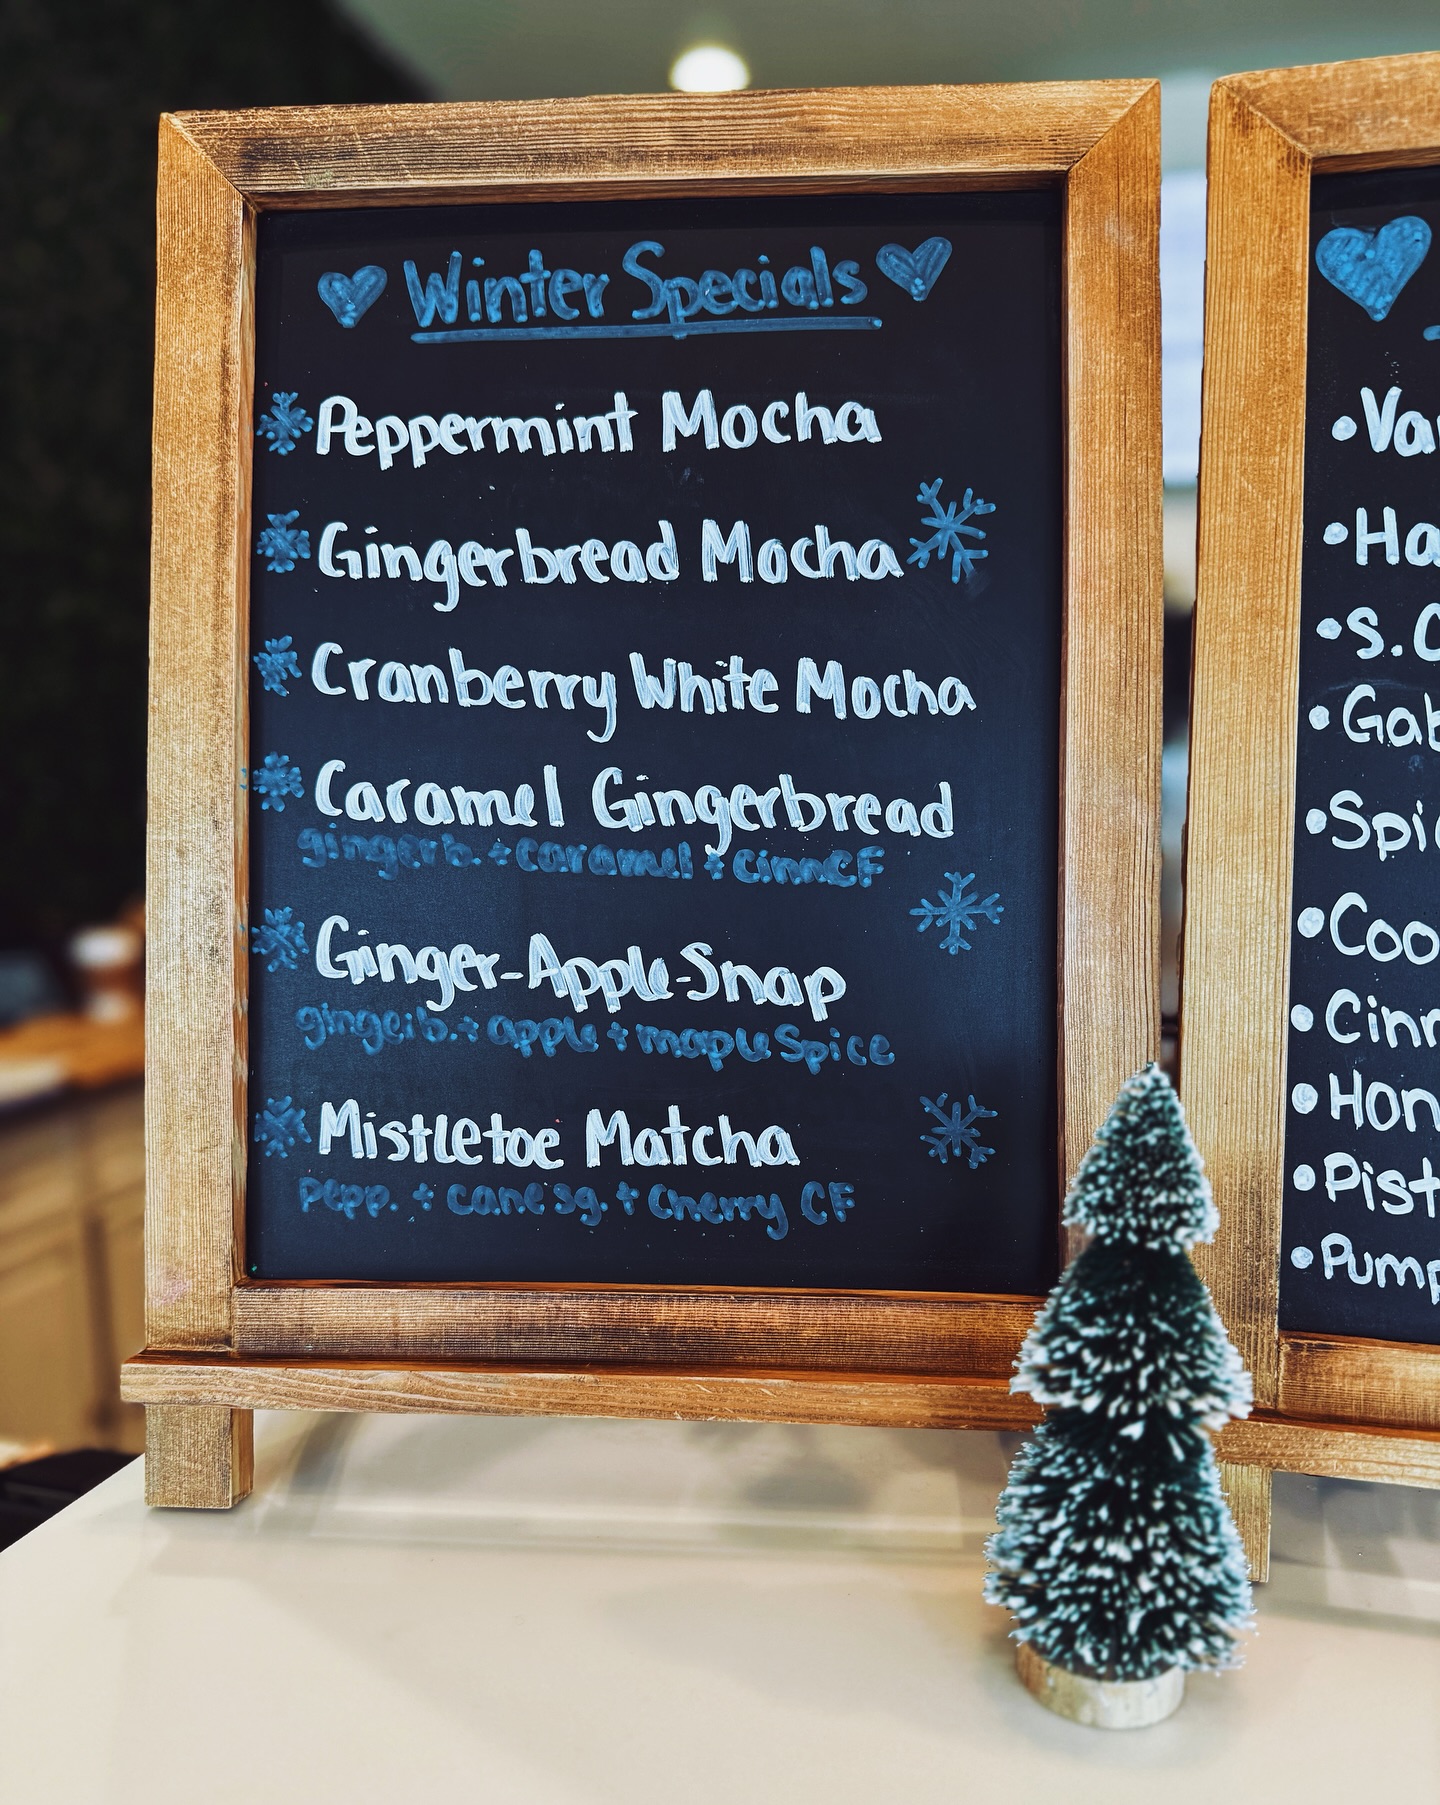 Winter Specials
Peppermint Mocha
Gingerbread Mocha
Cranberry White Mocha
Caramel Gingerbread
gingerb. + caramel + cinnCF
Ginger-Apple-Snap
gingerb. + apple + maple Spice
Mistletoe Matcha
pepp. + cane sg. + cherry CF
Va
Ha
S.C
Gab
Spic
Coo
Cinn
Hon
Pist
Pump